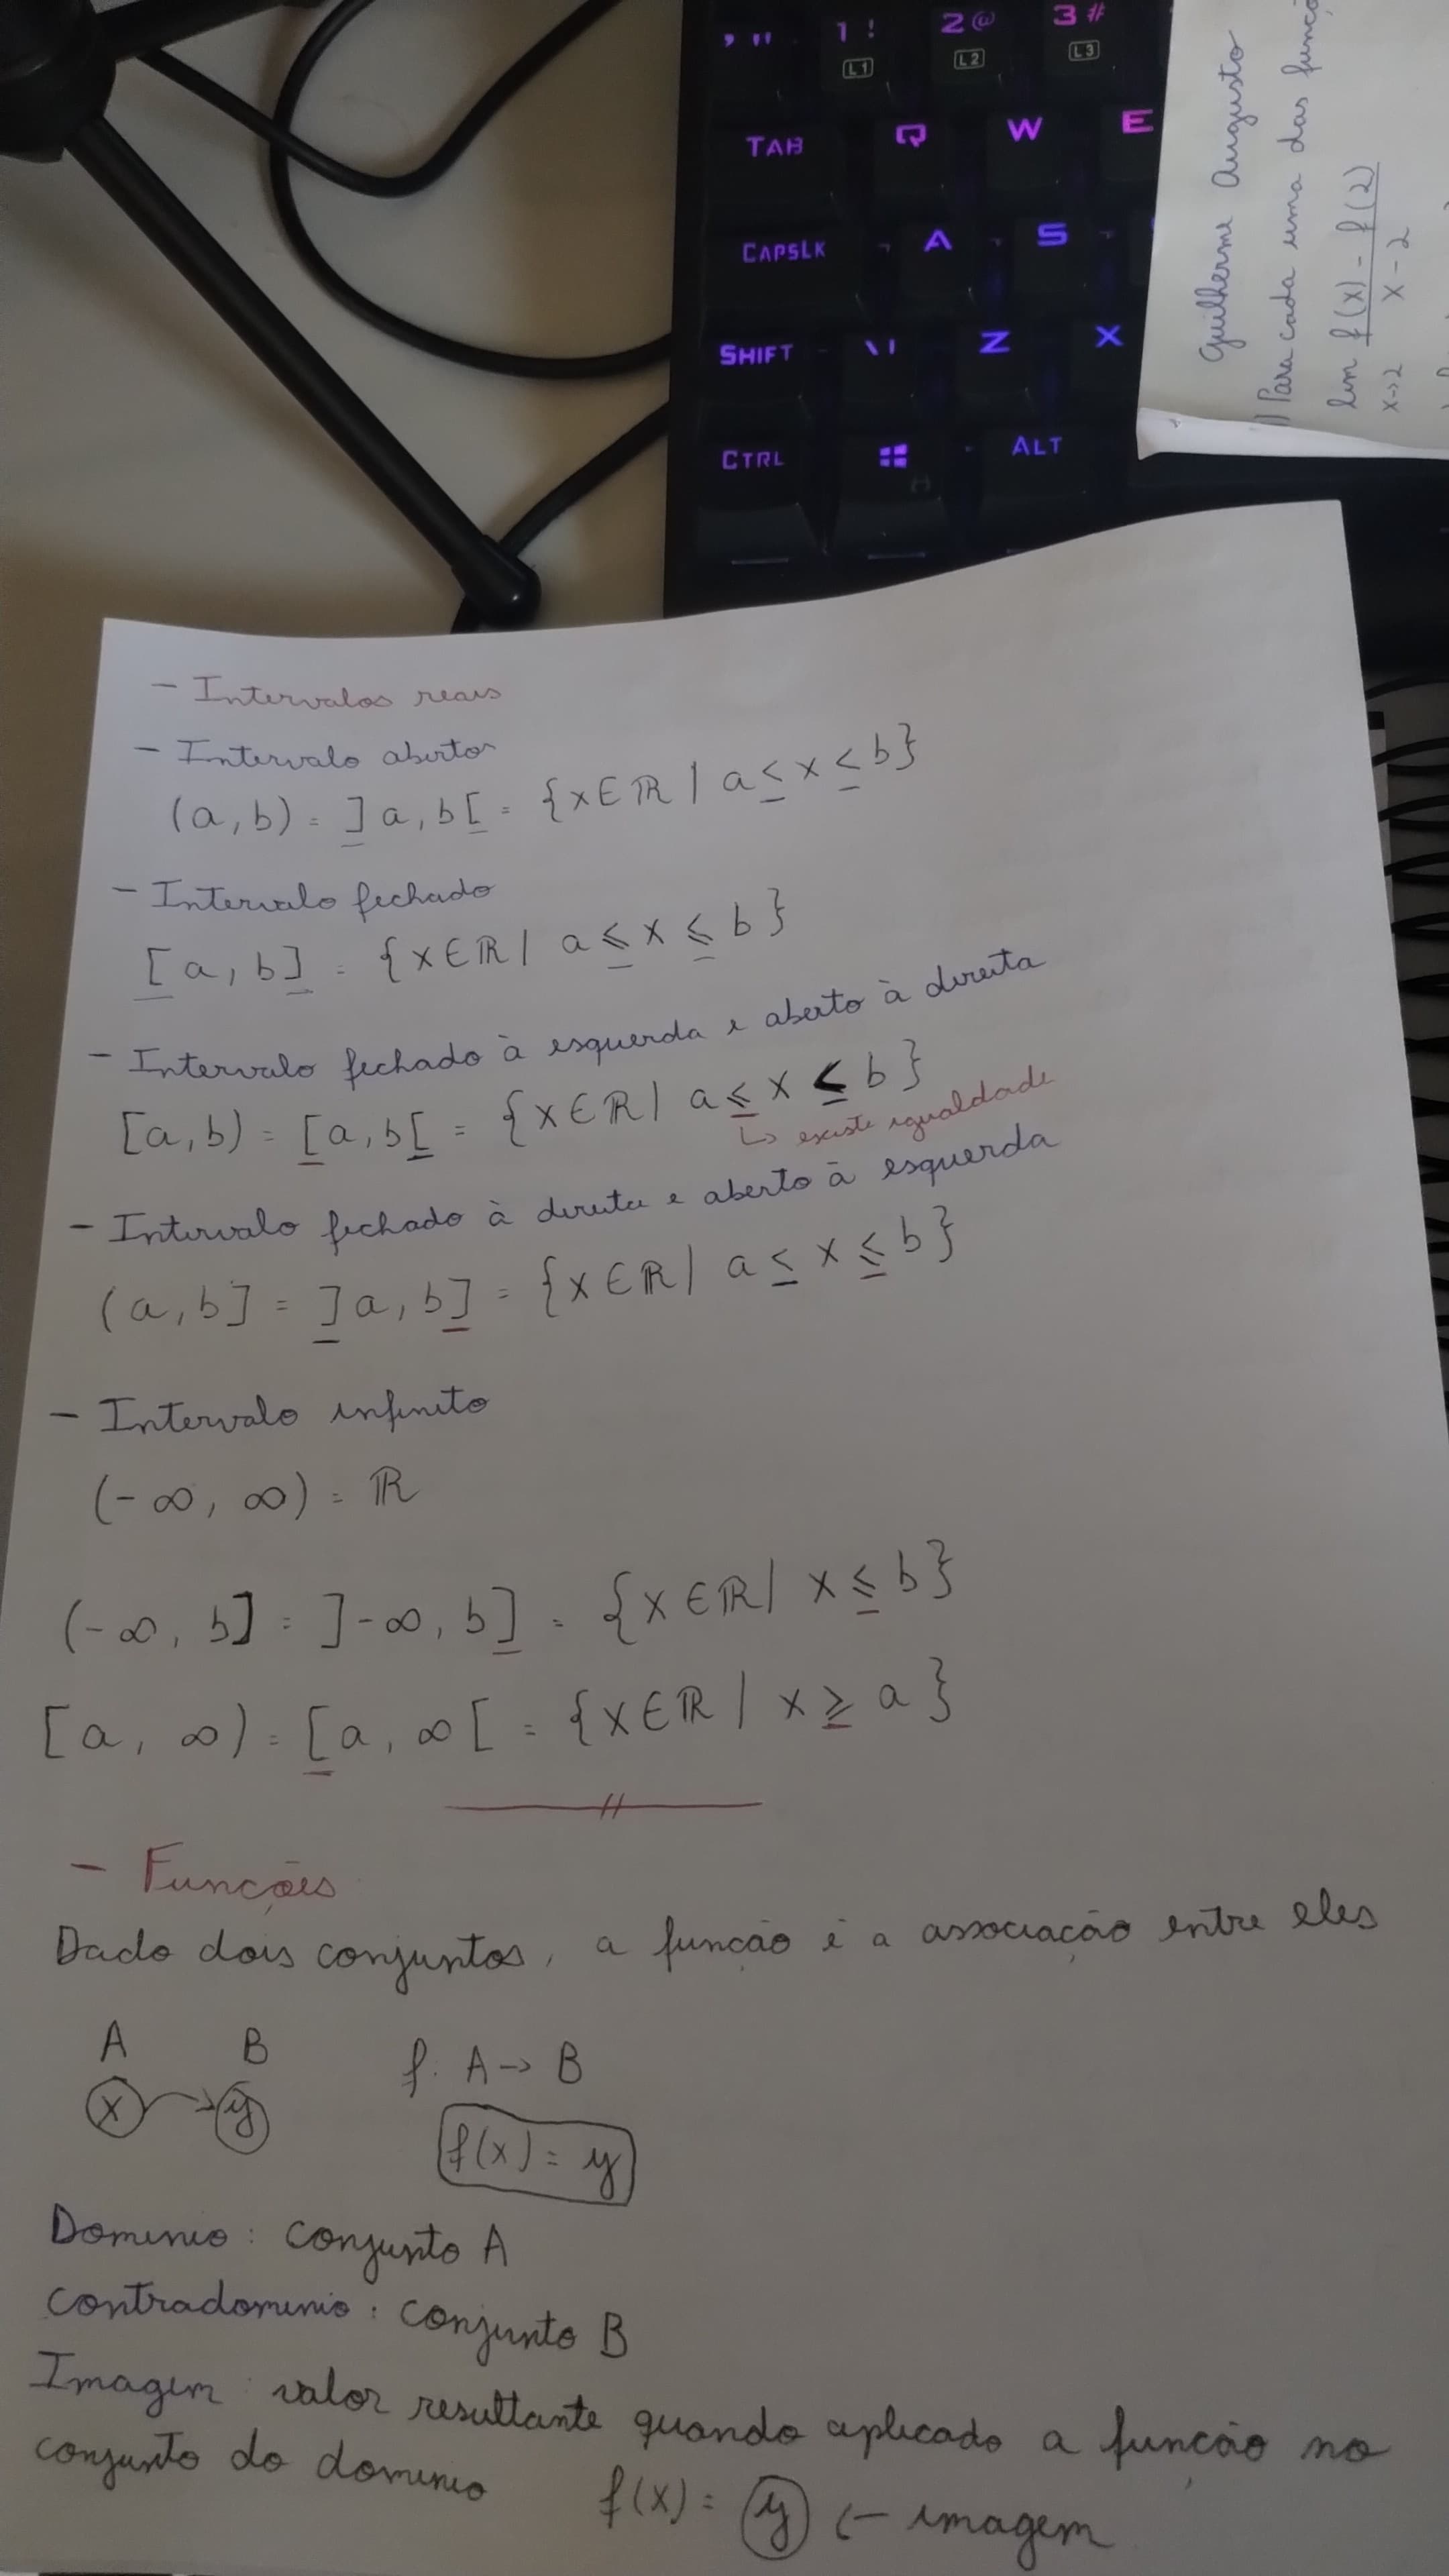 ' "
1 !
2 @
3 #
L1
L2
L3
TAB
Q
W
E
CAPSLK
A
S
SHIFT
\ |
Z
X
CTRL
ALT
Guilherme Augusto
) Para cada uma das funçõ
lim f(x) - f(2)
x→2 x - 2
- Intervalos reais
- Intervalo aberto
(a, b) = ]a, b[ = {x∈ℝ | a < x < b}
- Intervalo fechado
[a, b] = {x∈ℝ | a ≤ x ≤ b}
- Intervalo fechado à esquerda e aberto à direita
[a, b) = [a, b[ = {x∈ℝ | a ≤ x < b}
↳ existe igualdade
- Intervalo fechado à direita e aberto à esquerda
(a, b] = ]a, b] = {x∈ℝ | a < x ≤ b}
- Intervalo infinito
(-∞, ∞) = ℝ
(-∞, b] = ]-∞, b] = {x∈ℝ | x ≤ b}
[a, ∞) = [a, ∞[ = {x∈ℝ | x ≥ a}
- Funções
Dado dois conjuntos, a função é a associação entre eles
A B f: A → B
x → y f(x) = y
Dominio: conjunto A
contradominio: conjunto B
Imagem: valor resultante quando aplicado a função no
conjunto do dominio f(x) = y ← imagem